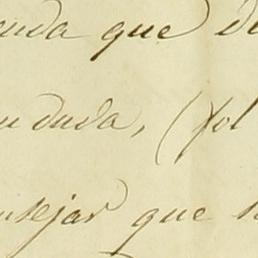 enda que de
n duda, (fol
nsejar que s